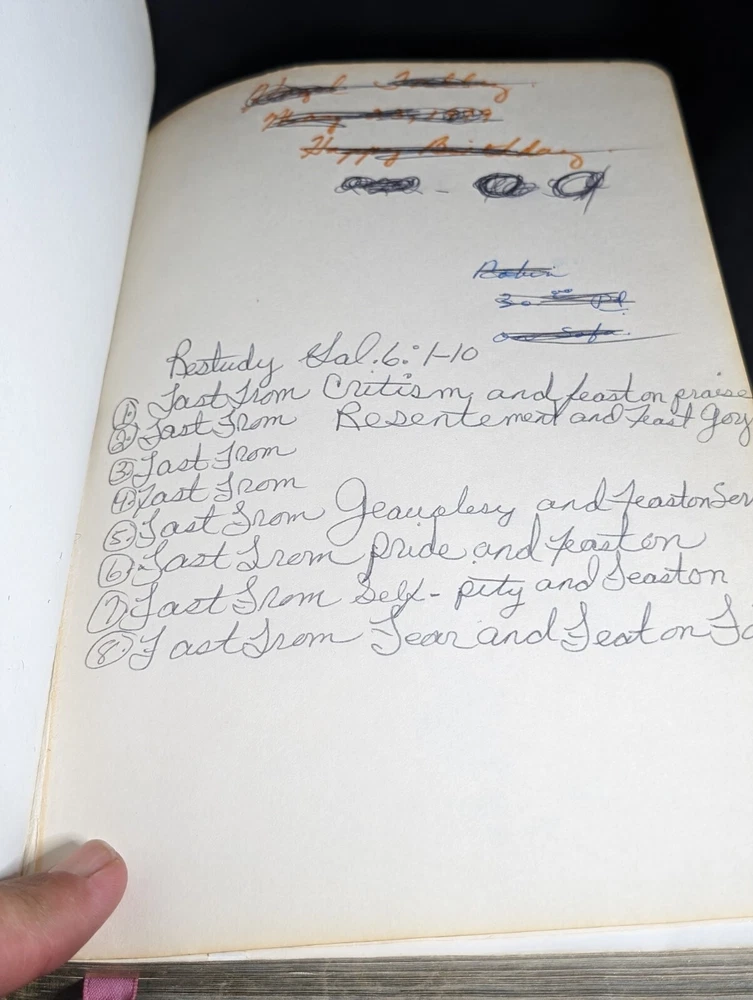 May
Happy Birthday
Robin
30.00 Pd.
on Sofa
Restudy Gal. 6:1-10
1. Fast From Critism and feast on praise
2. Fast From Resentement and Feast Goy
3. Fast From
4. Fast From
5. Fast From Geauplesy and Feaston Ser
6. Fast From pride and Feaston
7. Fast From Self-pity and Feaston
8. Fast From Fear and Feat on Fa